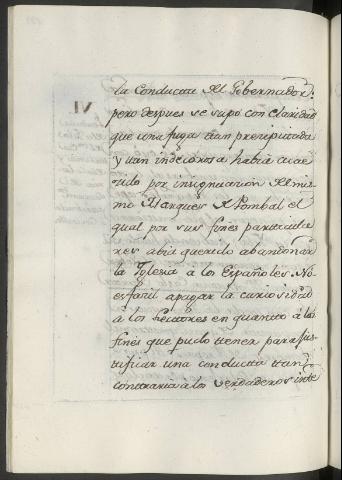 la Conducata del Gobernador:
pero despues se supo con claridad
que una fuga ttan precipitada
y ttan indecorosa habia acae
cido por insignuacion del mis
mo Marques de Pombal el
qual por sus fines particula
res abia querido abandonar
la Yglesia à los Españoles. No
es facil apagar la curiosidad
à los Lectores en quantto à los
fines que pudo ttener para jus
ttificar una conducta ttan
conttraria à los verdaderos inte
VI